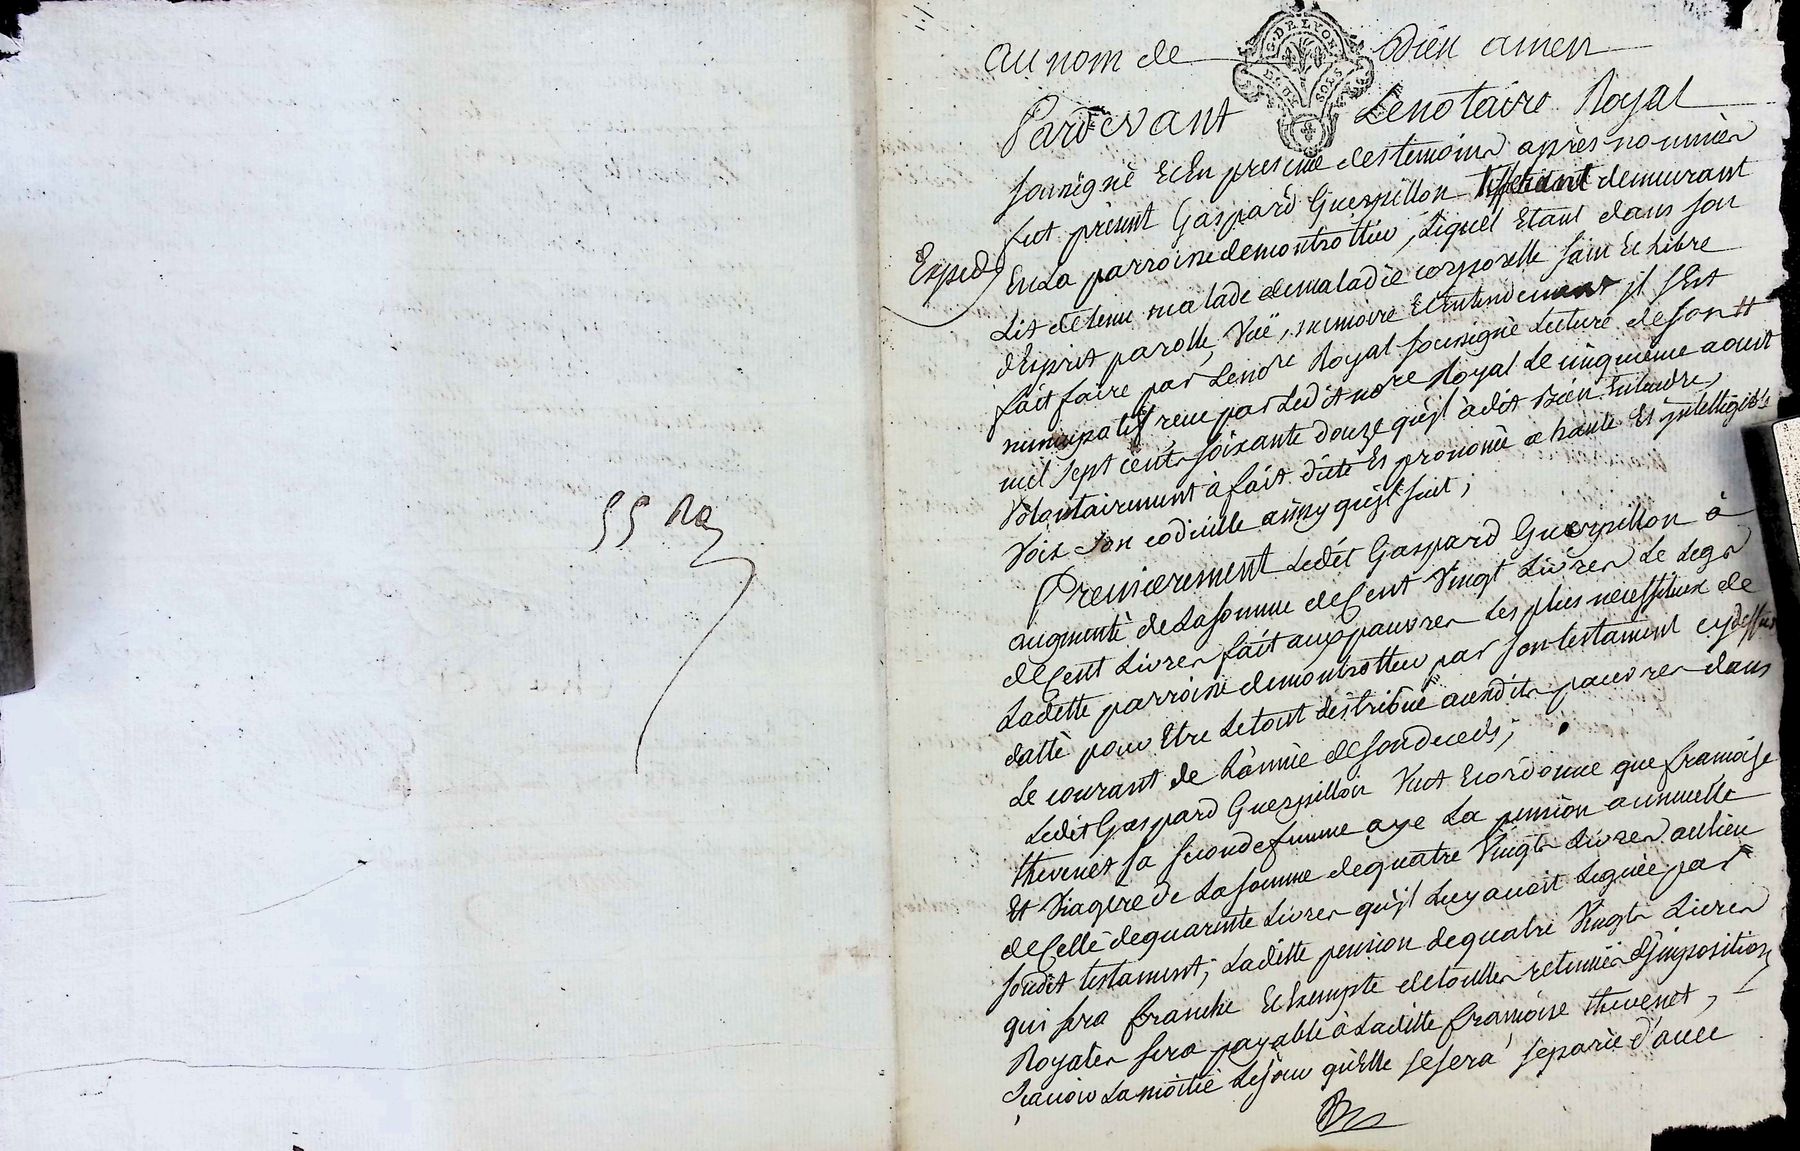 55 Ro
G. DE LYON
DEUX SOLS
au nom de Dieu amen
Pardevant Lenotaire Royal
Soussigné et En presence destemoins après nommés
fut présent Gaspard Guerpillon demeurant
Exped
En La parroisse demontrottier, Lequel Etant dans son
Lit détenu malade demaladie corporelle sain et Libre
d'Esprit parolle, Vuë, memoire et Entendement il s'Est
fait faire par Lenore Royal soussigné Lecture deson tt
nuncupatif receu par Ledit nore Royal Le cinquième aoust
mil sept cents soixante douze qu'jl à dit Bien Entendre,
Volontairement à fait dicté et prononcé a haute Et jntelligible
Voix son codicille ainsy qu'jl suit;
Premierement Ledit Gaspard Guerpillon à
augmenté de Lasomme deCent Vingt Livres Le Legs
deCent Livres fait aux pauvres Les plus necessiteux de
Laditte parroisse demontrottier par son testament cydessus
datté pour Etre Letout distribué auxdits pauvres dans
Le courant de L'année deson deceds;
Ledit Gaspard Guerpillon Veut Et ordonne que françoise
thevenet sa seconde femme aye La pension annuelle
Et Viagere de La somme dequatre Vingts Livres aulieu
deCelle dequarante Livres qu'jl Luy avoit Leguée par
sondit testament; Laditte pension dequatre Vingts Livres
qui sera franche et Exempte detouttes retenuës d'jmpositions
Royales sera payable à Laditte françoise thevenet,
sçavoir La moitié Lejour qu'elle se sera separée d'avec